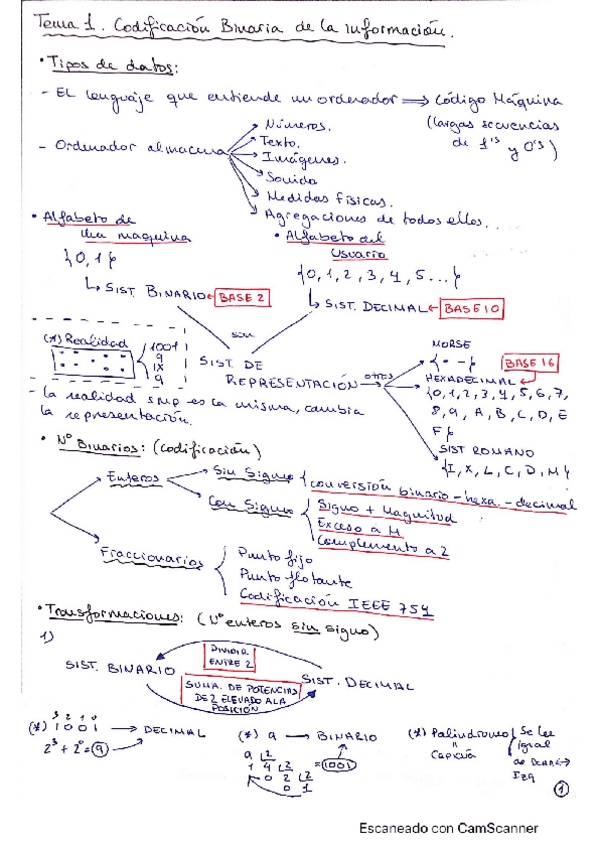 Tema 1. Codificación Binaria de la información.
• Tipos de datos:
- EL lenguaje que entiende un ordenador ⟹ Código Máquina
(largas secuencias
de 1's y 0's)
- Ordenador almacena
Números.
Texto.
Imágenes.
Sonido
Medidas físicas.
Agregaciones de todos ellos...
• Alfabeto de
una maquina
{0,1}
↳ SIST. BINARIO ← BASE 2
• Alfabeto del
Usuario
{0,1,2,3,4,5...}
↳ SIST. DECIMAL ← BASE 10
son
SIST. DE
REPRESENTACIÓN
otros
(*) Realidad
1001
9
IX
9
- La realidad smp es la misma, cambia
la representación.
MORSE
{• - }
BASE 16
HEXADECIMAL
{0,1,2,3,4,5,6,7,
8,9,A,B,C,D,E
F}
SIST ROMANO
{I,X,L,C,D,M}
• Nº Binarios: (Codificación)
Enteros
Sin Signo { conversión binario - hexa. - decimal
Con Signo { Signo + Magnitud
Exceso a M
Complemento a 2
Fraccionarios { Punto fijo
Punto flotante
Codificación IEEE 754
• Transformaciones: (Nº enteros sin signo)
1)
SIST. BINARIO
DIVIDIR
ENTRE 2
SIST. DECIMAL
SUMA DE POTENCIAS
DE 2 ELEVADO A LA
POSICIÓN
3 2 1 0
(*) 1 0 0 1 → DECIMAL
2³ + 2⁰ = 9
(*) 9 → BINARIO
9 |2
1 4 |2
0 2 |2
0 1
= 1001
(*) Palíndromo
"
Capicúa
Se lee
igual
de Dcha ↔
Izq
1
Escaneado con CamScanner